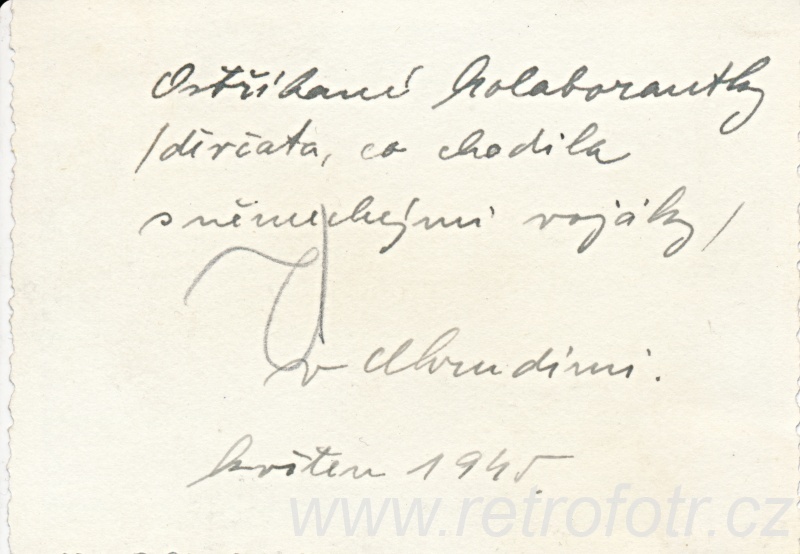 Ostříhané kolaborantky
/děvčata, co chodila
s německými vojáky/
v Chrudimi.
květen 1945.
www.retrofotr.cz